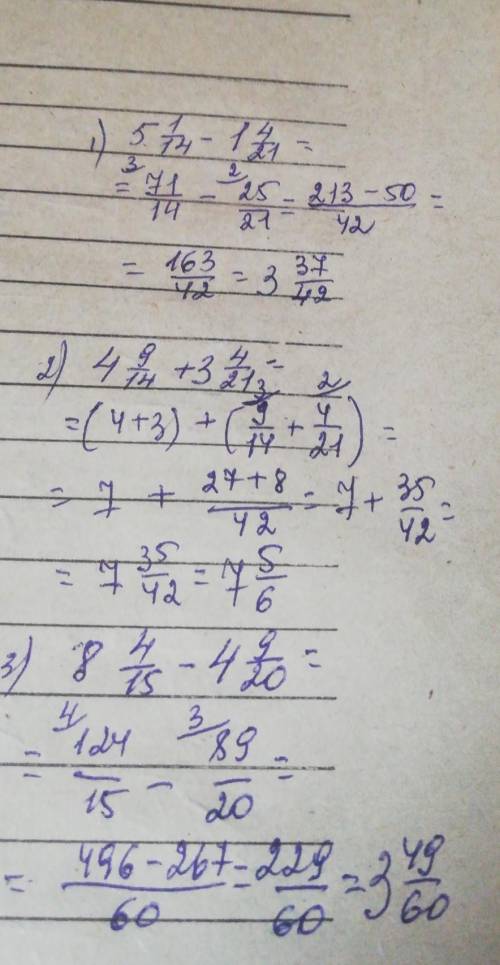 1) 5 1/14 - 1 4/21 =
= 71/14 (3 - 25/21 (2 = (213 - 50)/42 =
= 163/42 = 3 37/42
2) 4 9/14 + 3 4/21 =
= (4+3) + (9/14 (3 + 4/21 (2) =
= 7 + (27+8)/42 = 7 + 35/42 =
= 7 35/42 = 7 5/6
3) 8 4/15 - 4 9/20 =
= 124/15 (4 - 89/20 (3 =
= (496 - 267)/60 = 229/60 = 3 49/60